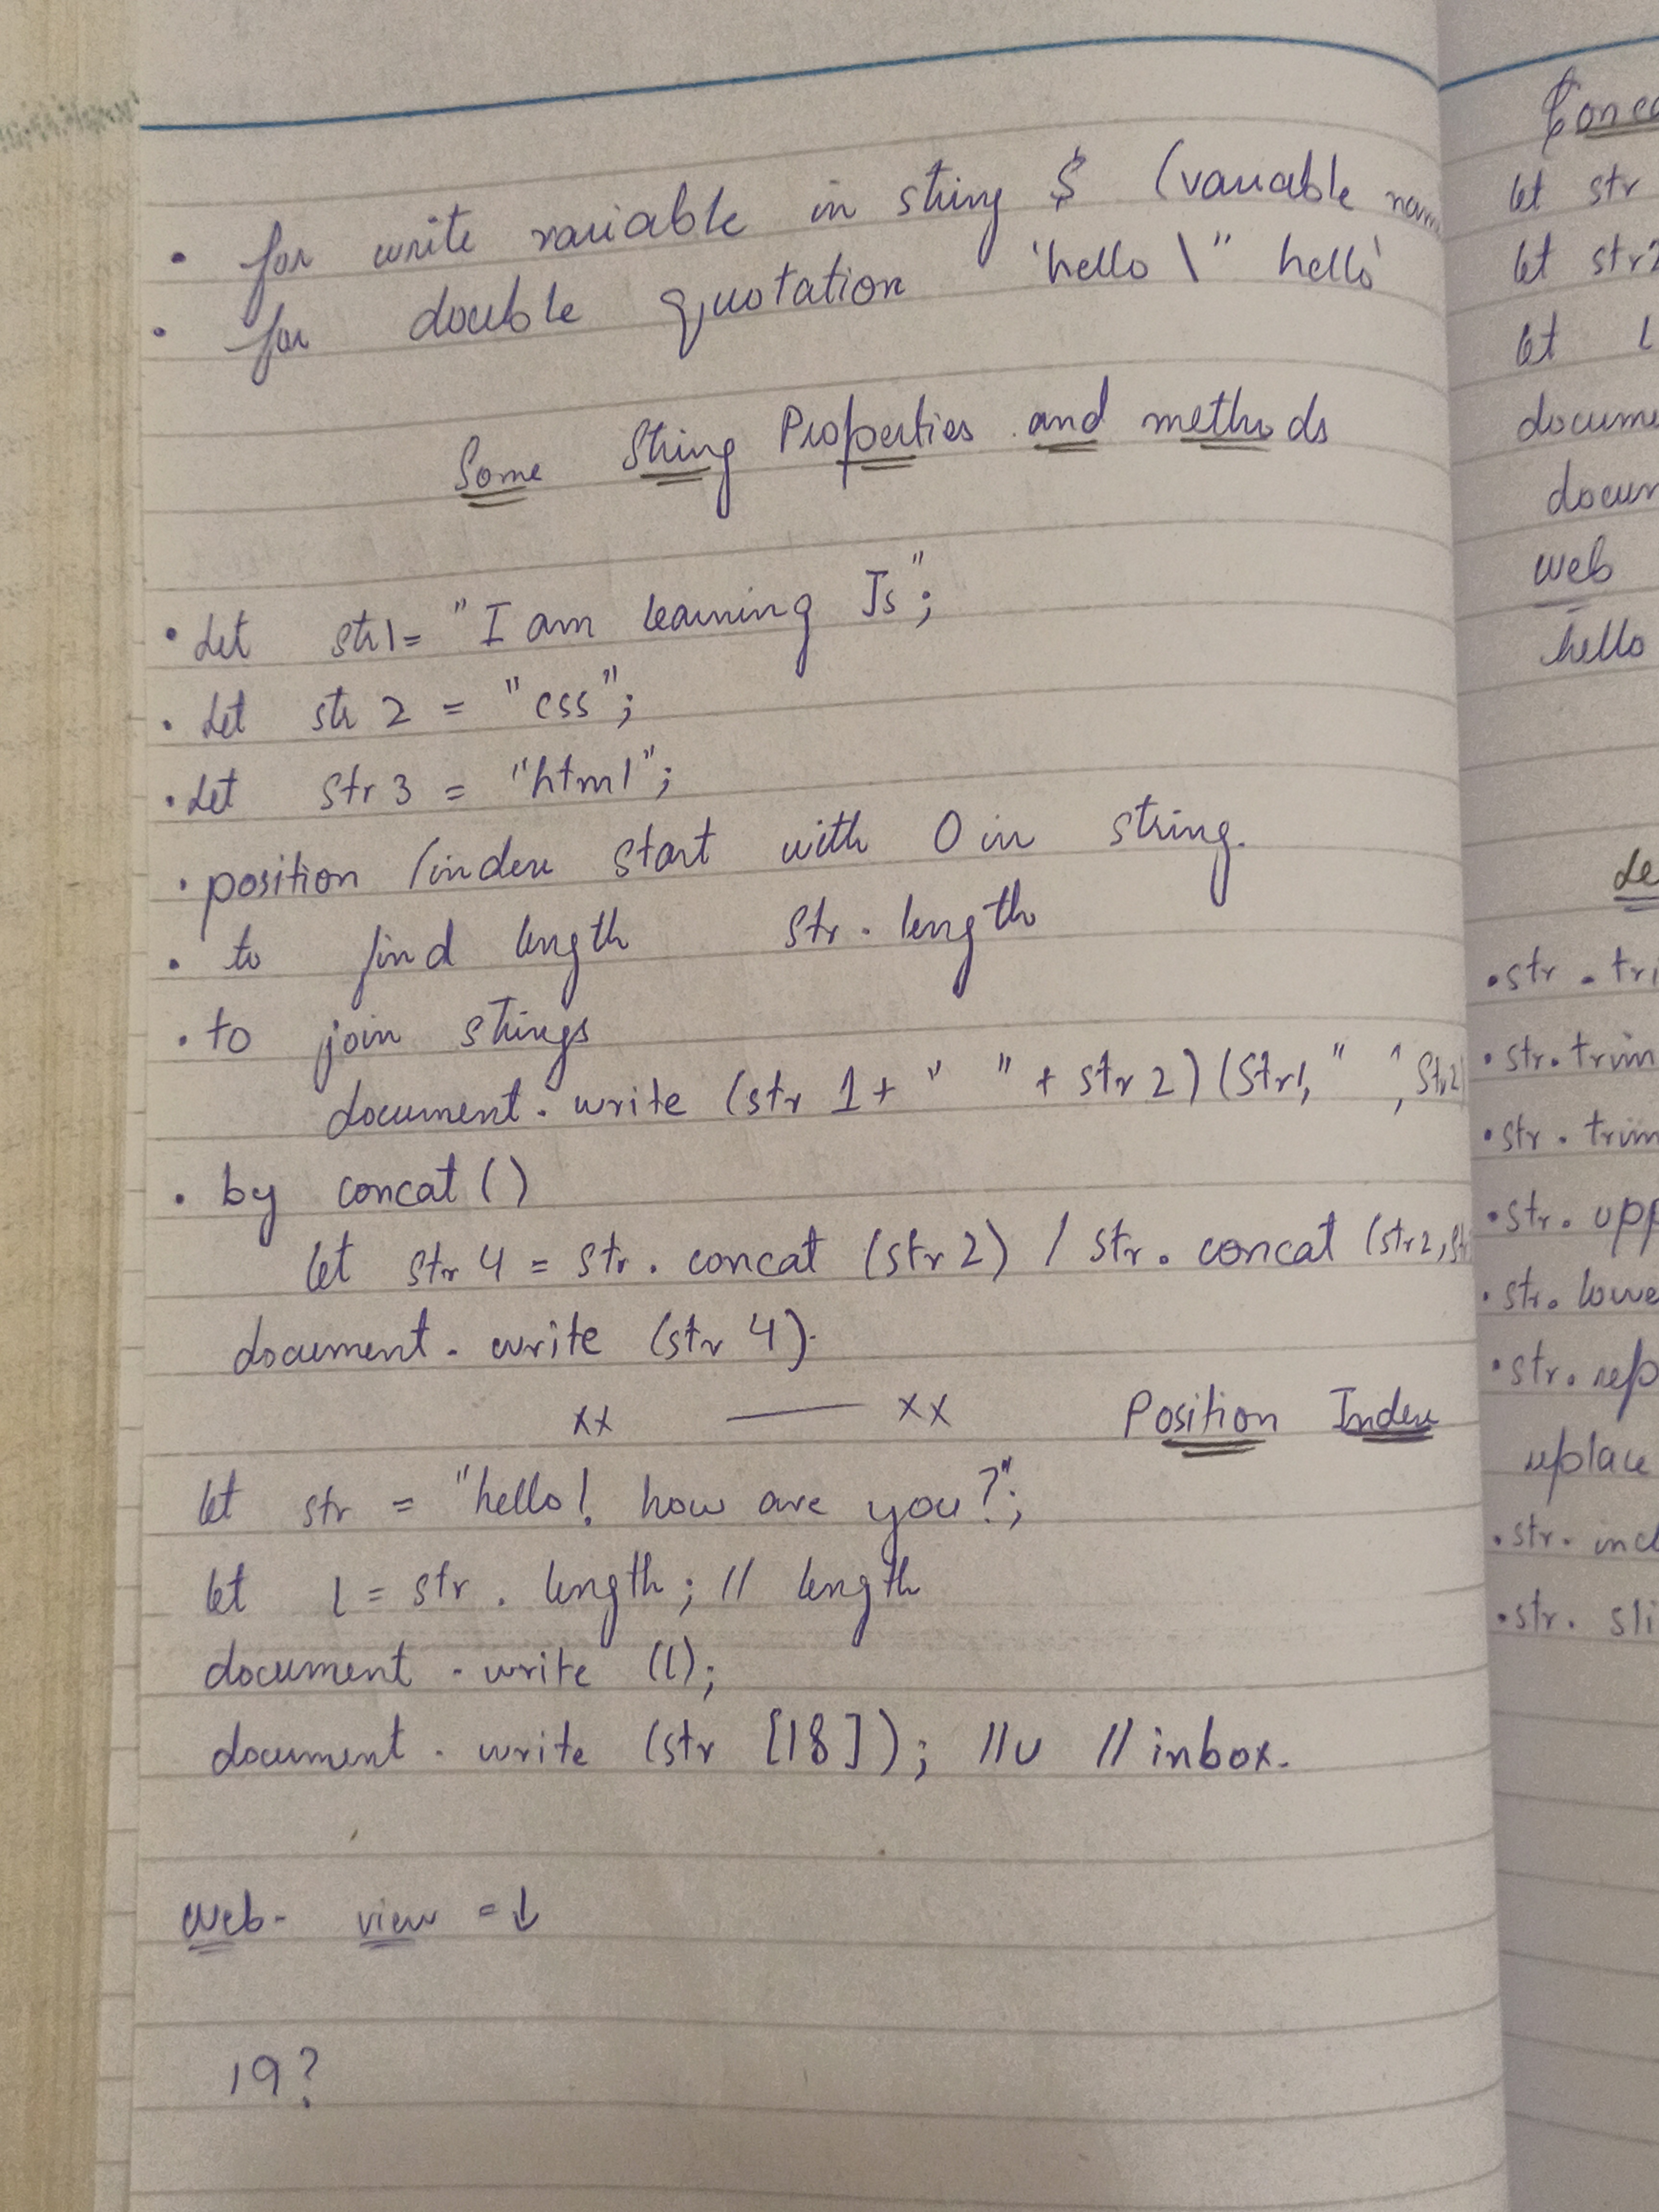 • for write variable in string $ (variable nam
• for double quotation 'hello \" hello'
Some String Properties and methods
• Let str1= "I am learning Js";
• Let str 2 = "css";
• Let str 3 = "html";
• position /index start with 0 in string.
• to find length str. length
• to join strings
document. write (str 1+ " " + str 2) (str1, " ", str2)
• by concat ()
let str 4 = str. concat (str 2) / str. concat (str2, st
document. write (str 4).
xx —— xx Position Index
let str = "hello! how are you?";
let l = str. length; // length
document. write (l);
document. write (str [18]); //u // inbox.
Web- view = ↓
19?
Conc
let str
let str2
let l
docume
docum
web
hello
Le
• str. tri
• str. trim
• str. trim
• str. upp
• str. lowe
• str. rep
replace
• str. incl
• str. sli